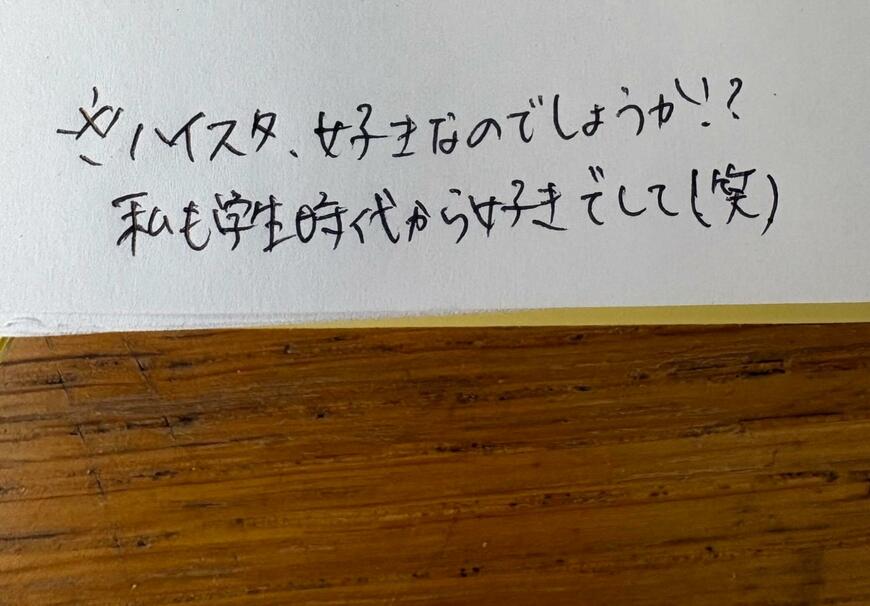 ※ハイスタ、好きなのでしょうか!?
私も学生時代から好きでして(笑)